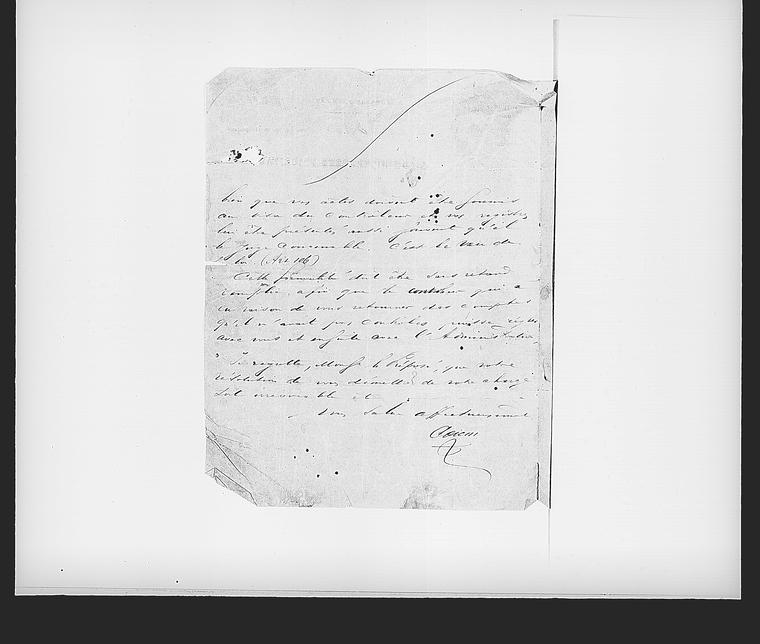 bien que vos actes doivent être soumis
au visa du Contrôleur et vos registres
lui être présentés aussi souvent qu'il
le Juge Convenable. C'est le vœu de
la loi (Art 106)
Cette formalité doit être sans retard
remplie, afin que le contrôleur qui a
eu raison de vous retourner des comptes
qu'il n'avait pas Contrôlés, puisse
avec vous et ensuite avec l'Administration
Je regrette, Monsr le Préposé, que votre
résolution de vous démettre de votre charge
soit irrévocable et
vous salue affectueusement